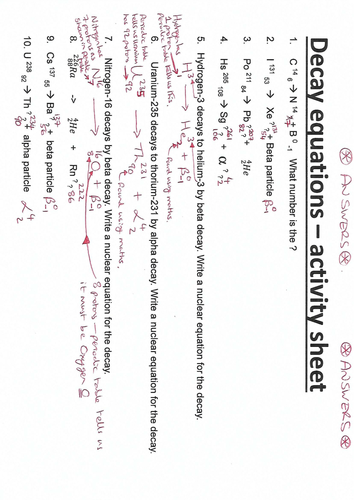 ⊛ ANSWERS ⊛. ⊛ ANSWERS ⊛
Decay equations – activity sheet
1. C 14 6 → N 14 ? 7 + β 0 -1 What number is the ?
2. I 131 53 → Xe ?131 ?54 + Beta particle β 0 -1
3. Po 211 84 → Pb ?207 82? + 4 2 He
4. Hs 265 108 → Sg ?261 ?106 + α ?4 ?2
5. Hydrogen-3 decays to helium-3 by beta decay. Write a nuclear equation for the decay.
H 3 1 → He 3 2 + β 0 -1
found using maths.
6. Uranium-235 decays to thorium-231 by alpha decay. Write a nuclear equation for the decay.
U 235 92 → Th 231 90 + α 4 2
found using maths.
7. Nitrogen-16 decays by beta decay. Write a nuclear equation for the decay.
N 16 7 → 16 8 O + β 0 -1
8 protons – periodic table tells us
it must be Oxygen
8. 226 88 Ra -> 4 2 He + Rn ?222 ?86
9. Cs 137 55 → Ba ?137 ?56 + beta particle β 0 -1
10. U 238 92 → Th ?234 ?90 + alpha particle α 4 2